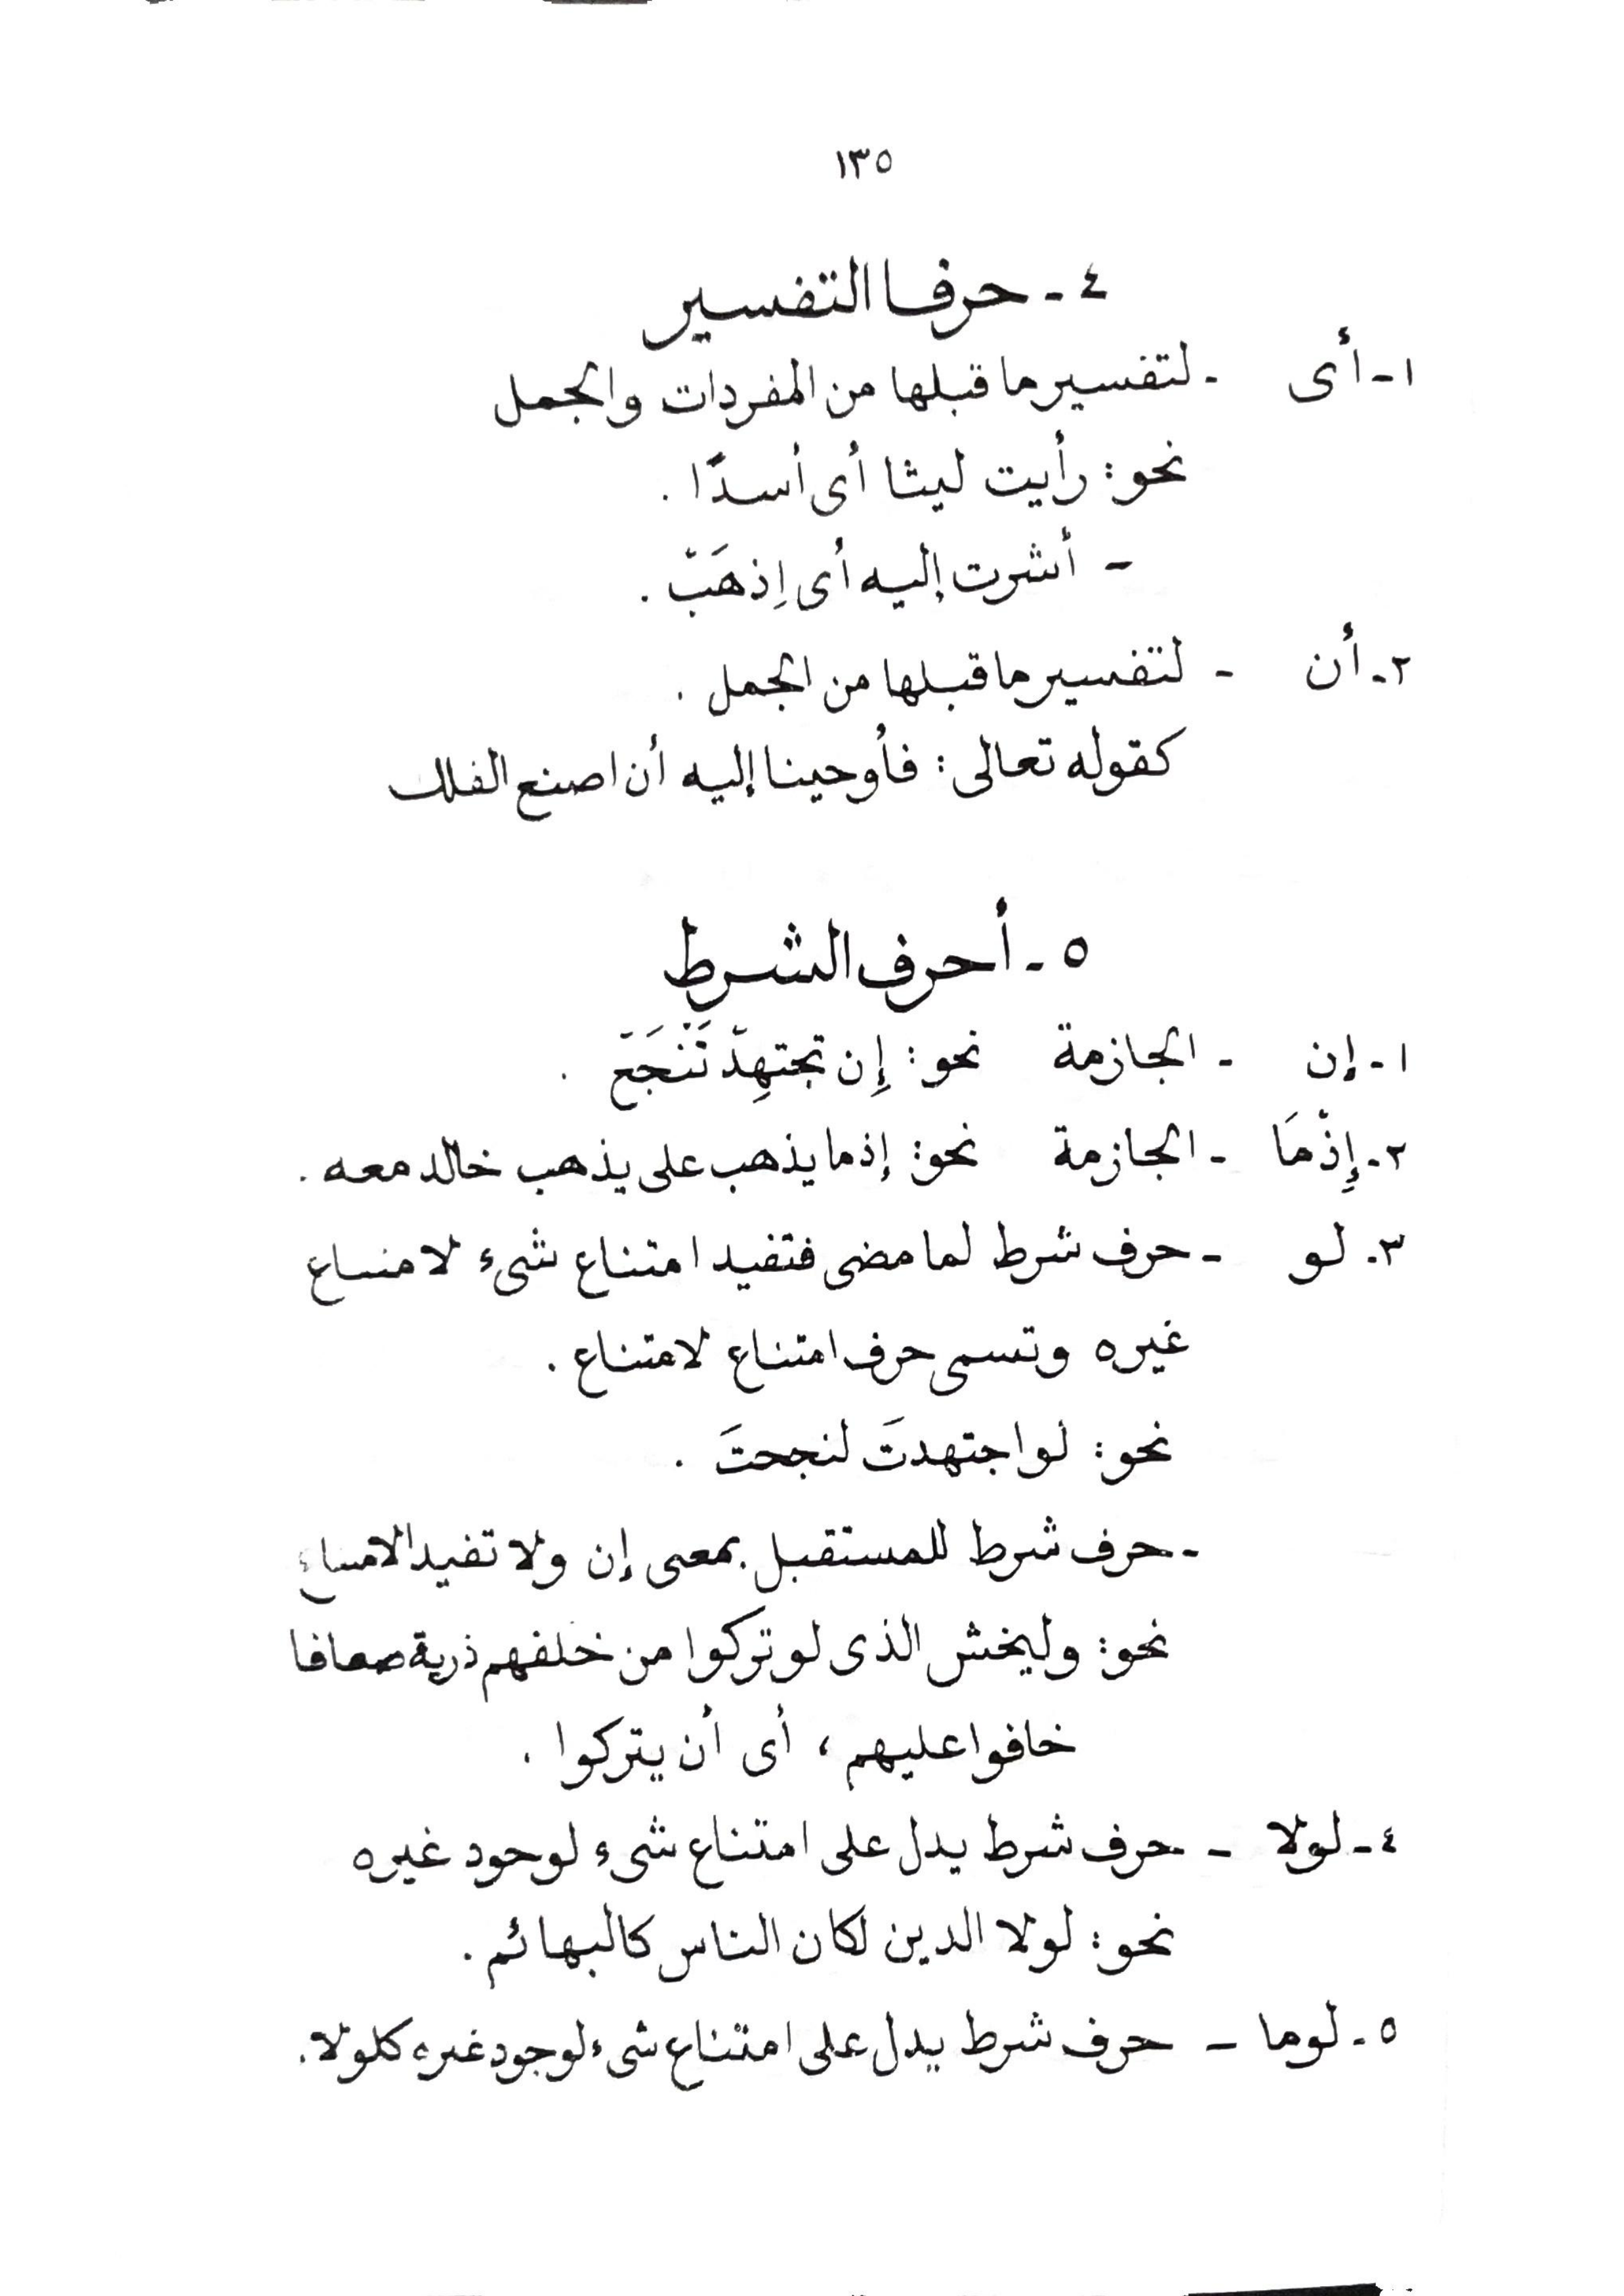 ١٣٥
٤ - حرفا التفسير
١ - أى - لتفسير ما قبلها من المفردات والجمل
نحو: رأيت ليثا أى أسدًا .
- أشرت إليه أى إِذهَبْ .
٢ - أن - لتفسير ما قبلها من الجمل .
كقوله تعالى : فأوحينا إليه أن اصنع الفلك
٥ - أحرف الشرط
١ - إن - الجازمة نحو: إِن تجتهِدْ تَنْجَحْ .
٢ - إِذْمَا - الجازمة نحو: إذما يذهب على يذهب خالد معه .
٣ - لو - حرف شرط لما مضى فتفيد امتناع شىء لامتناع
غيره وتسمى حرف امتناع لامتناع .
نحو: لو اجتهدتَ لنجحتَ .
- حرف شرط للمستقبل بمعنى إن ولا تفيد الامتناع
نحو: وليخش الذى لو تركوا من خلفهم ذرية ضعافا
خافوا عليهم ، أى أن يتركوا .
٤ - لولا - حرف شرط يدل على امتناع شىء لوجود غيره
نحو: لولا الدين لكان الناس كالبهائم .
٥ - لوما - حرف شرط يدل على امتناع شىء لوجود غيره كلولا .